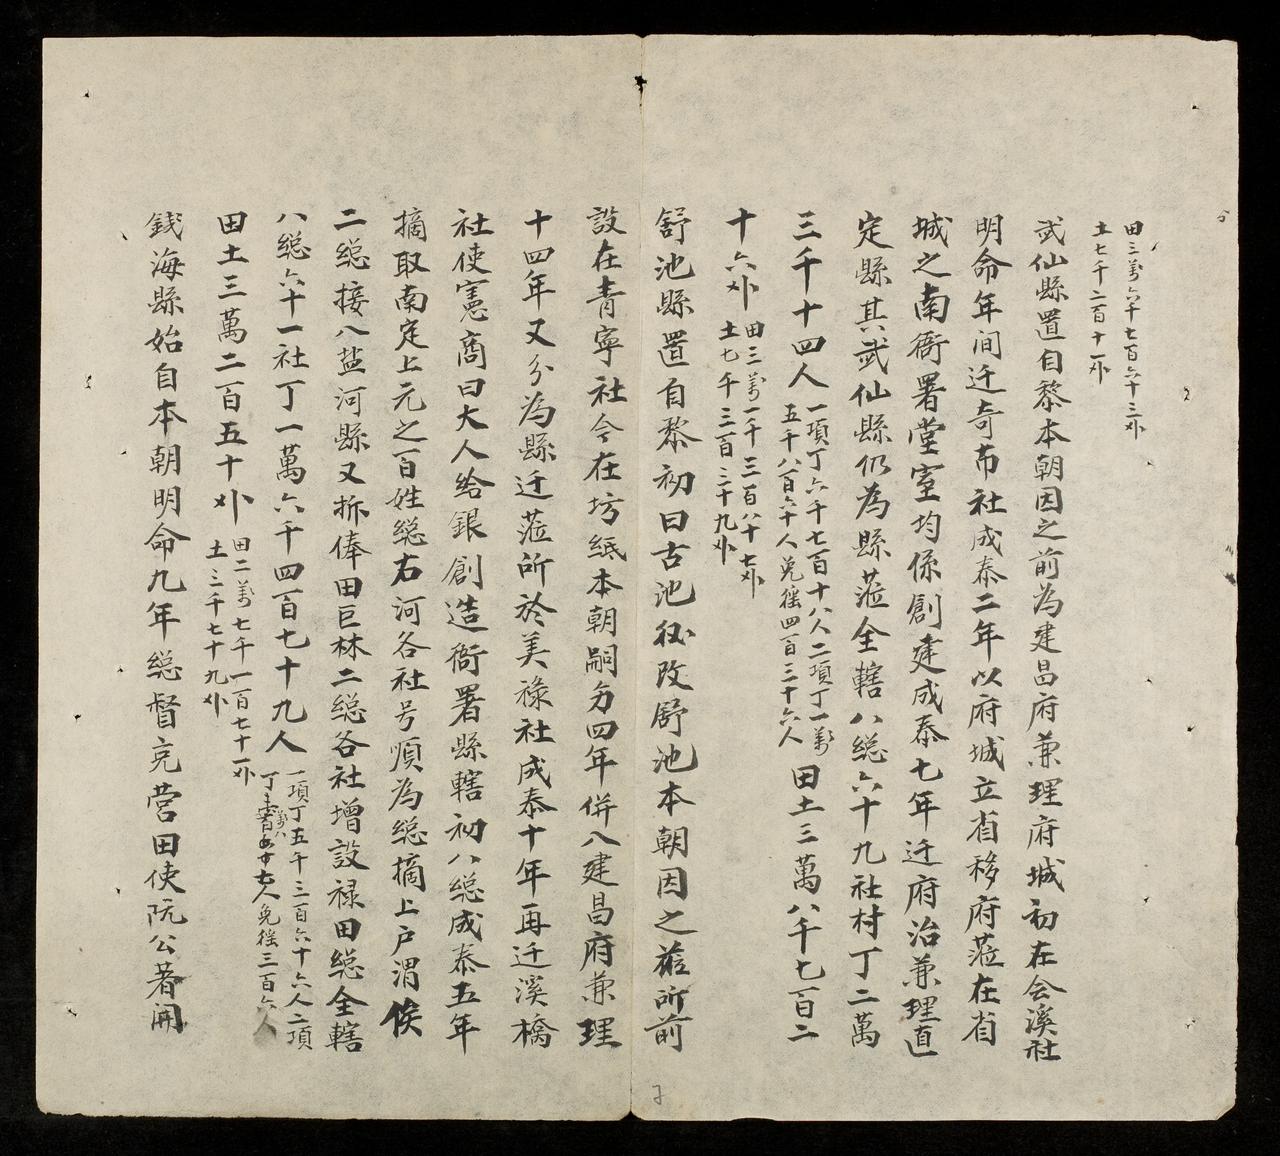 田三萬六千七百六十三外
土七千二百十一外
武仙縣置自黎本朝因之前為建昌府兼理府城初在会溪社
明命年间迁奇布社成泰二年以府城立省移府蒞在省
城之南衙署堂室均係創建成泰七年迁府治兼理直
定縣其武仙縣仍為縣蒞全轄八総六十九社村丁二萬
三千十四人一項丁六千七百十八人二項丁一萬五千八百六十人免徭四百三十六人田土三萬八千七百二
十六外田三萬一千三百八十七外土七千三百三十九外
舒池縣置自黎初曰古池後改舒池本朝因之蒞所前
設在青寧社今在坊紙本朝嗣㝵四年併入建昌府兼理
十四年又分為縣迁蒞所於美祿社成泰十年再迁溪橋
社使憲商曰大人给銀創造衙署縣轄初八総成泰五年
摘取南定上元之百姓総右河各社号順為総摘上户渭俟
二総接入盐河縣又拆俸田巨林二総各社增設禄田総全轄
八総六十一社丁一萬六千四百七十九人一項丁五千三百六十六人二項丁萬八百七人免徭三百六人
田土三萬二百五十外田二萬七千一百七十一外土三千七十九外
錢海縣始自本朝明命九年総督充营田使阮公著開